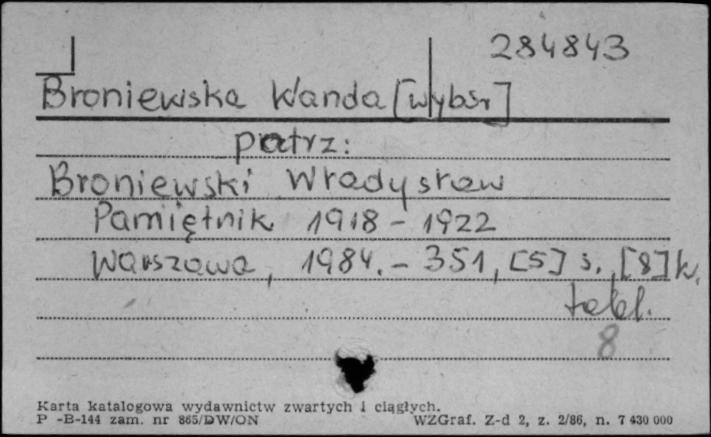 284843
Broniewska Wanda [wybór]
patrz:
Broniewski Władysław
Pamiętnik 1918 - 1922
Warszawa, 1984. - 351, [5] s., [8] k.
tabl.
8
Karta katalogowa wydawnictw zwartych i ciągłych.
P -B-144 zam. nr 865/DW/ON WZGraf. Z-d 2, z. 2/86, n. 7 430 000